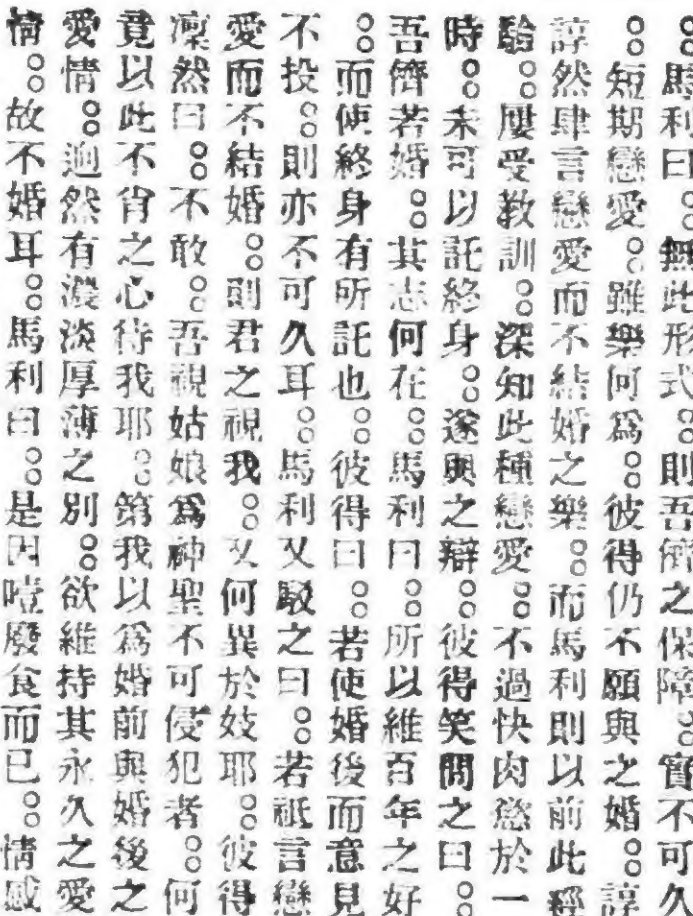 。馬利曰。無此形式。則吾儕之保障。實不可久
。短期戀愛。雖樂何爲。彼得仍不願與之婚。諄
諄然肆言戀愛而不結婚之樂。而馬利則以前此經
驗。屢受教訓。深知此種戀愛。不過快肉慾於一
時。未可以託終身。遂與之辯。彼得笑問之曰。
吾儕若婚。其志何在。馬利曰。所以維百年之好
。而使終身有所託也。彼得曰。若使婚後而意見
不投。則亦不可久耳。馬利又駁之曰。若祇言戀
愛而不結婚。則君之視我。又何異於妓耶。彼得
凜然曰。不敢。吾視姑娘爲神聖不可侵犯者。何
竟以此不肖之心待我耶。第我以爲婚前與婚後之
愛情。迥然有濃淡厚薄之別。欲維持其永久之愛
情。故不婚耳。馬利曰。是因噎廢食而已。情感